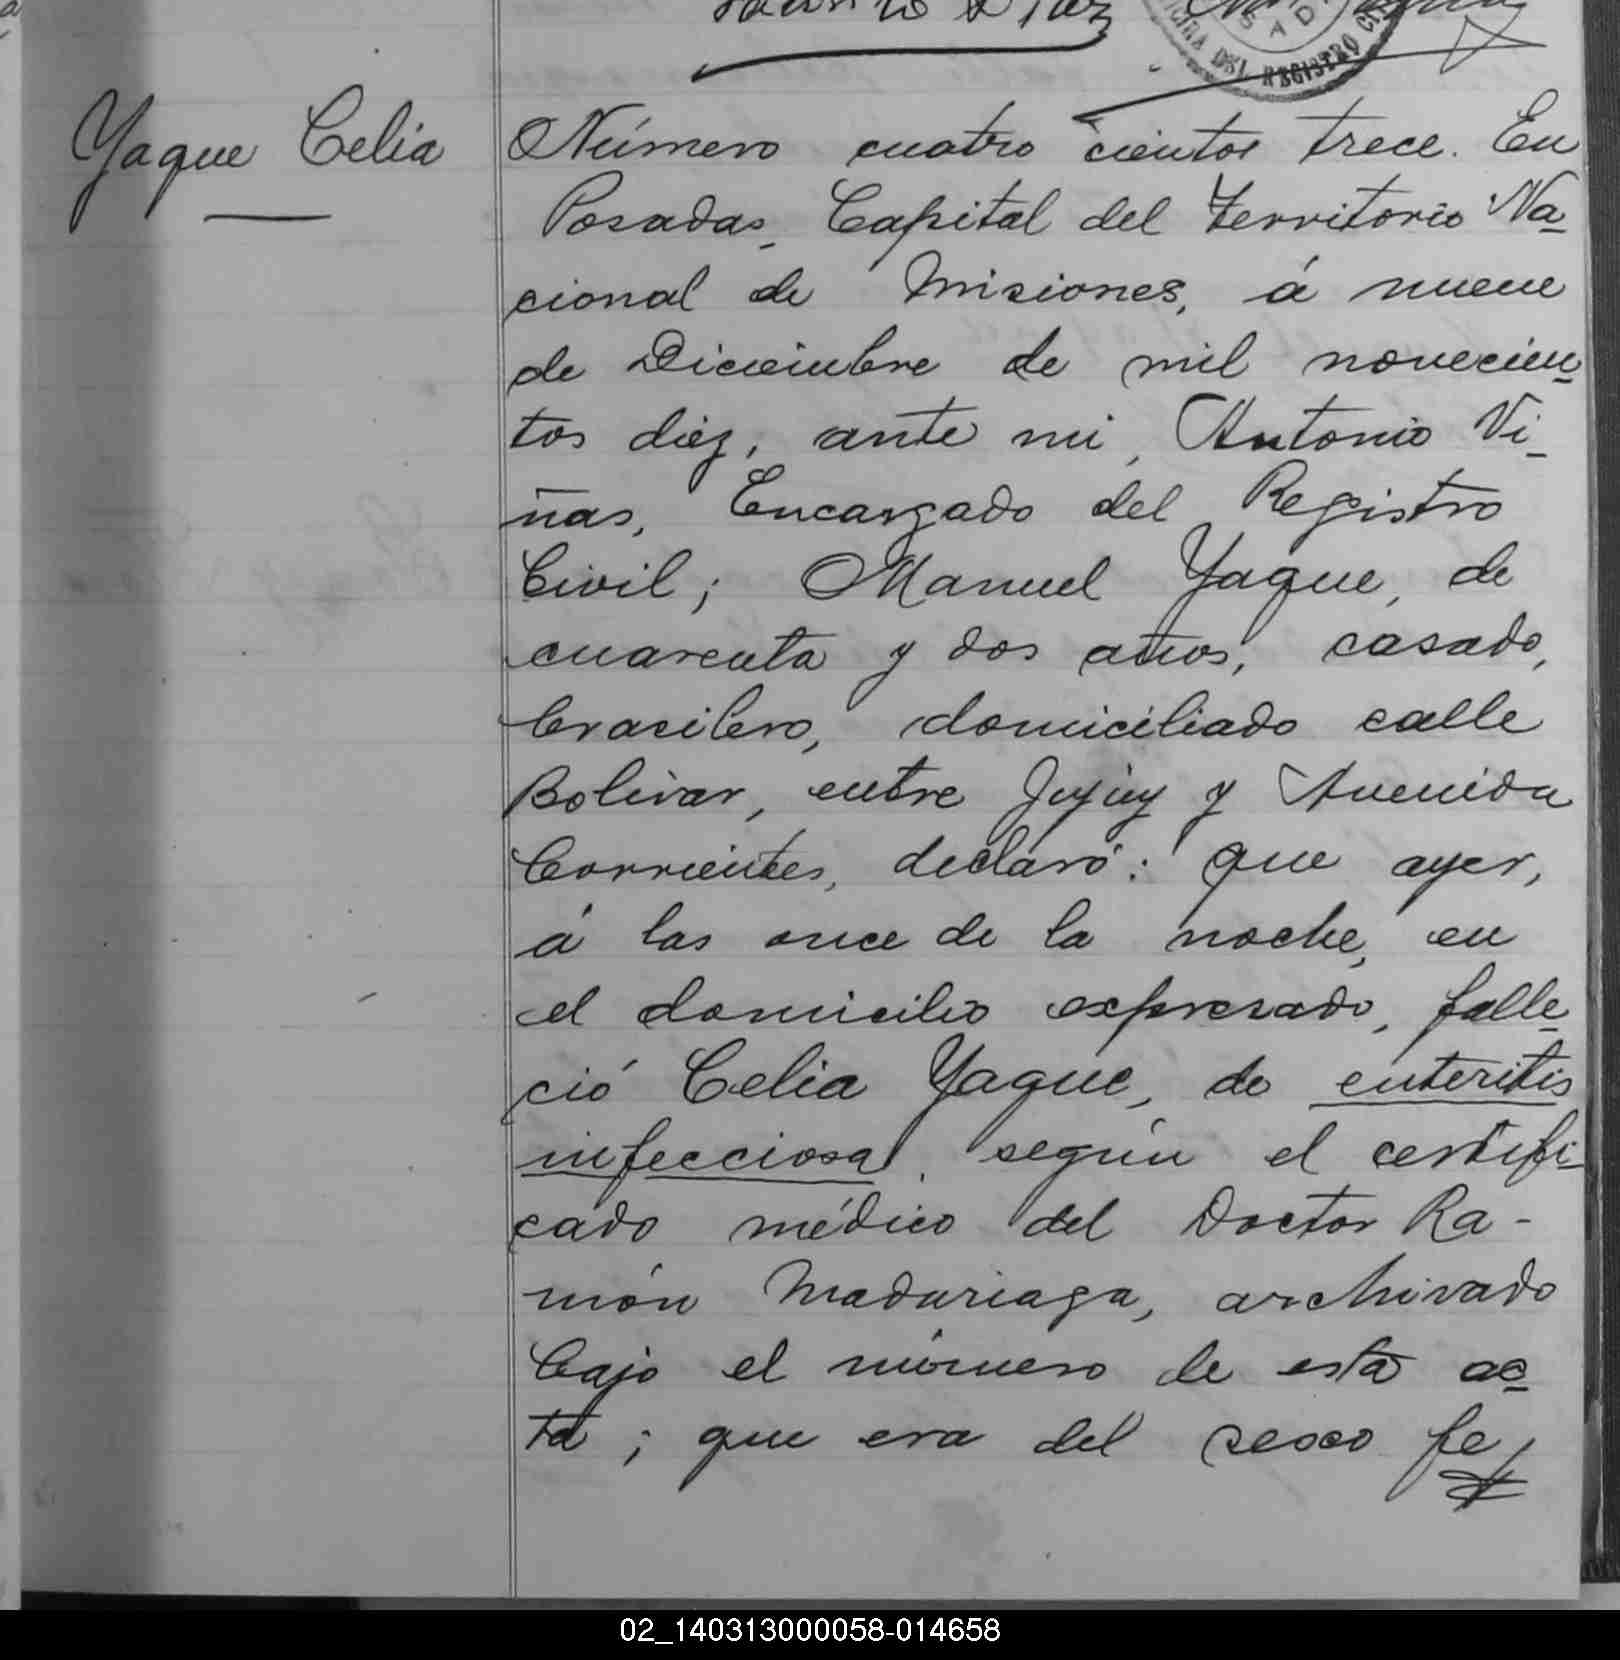 OFICINA DEL REGISTRO CI
SAD
Yaque Celia
Número cuatro cientos trece. En
Posadas, Capital del Territorio Na-
cional de Misiones, á nueve
de Diciembre de mil novecien-
tos diez, ante mi, Antonio Vi-
ñas, Encargado del Registro
Civil; Manuel Yaque, de
cuarenta y dos años, casado,
brasilero, domiciliado calle
Bolivar, entre Jujuy y Avenida
Corrientes, declaró: que ayer,
á las once de la noche, en
el domicilio expresado, falle-
ció Celia Yaque, de enteritis
infecciosa, según el certifi-
cado médico del Doctor Ra-
món Madariaga, archivado
bajo el número de esta ac-
ta; que era del sexo fe
02_140313000058-014658